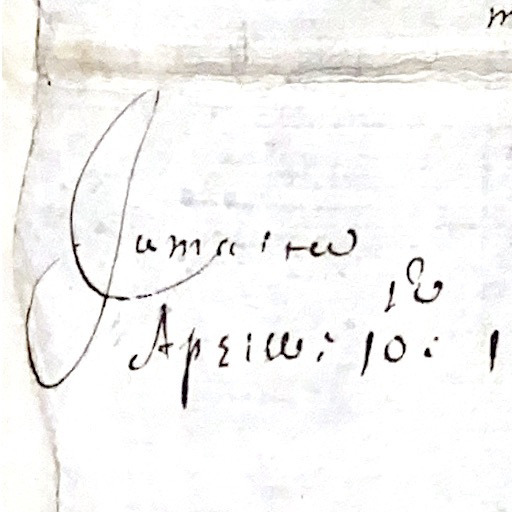 Jamaica
Aprill: 10th: 1